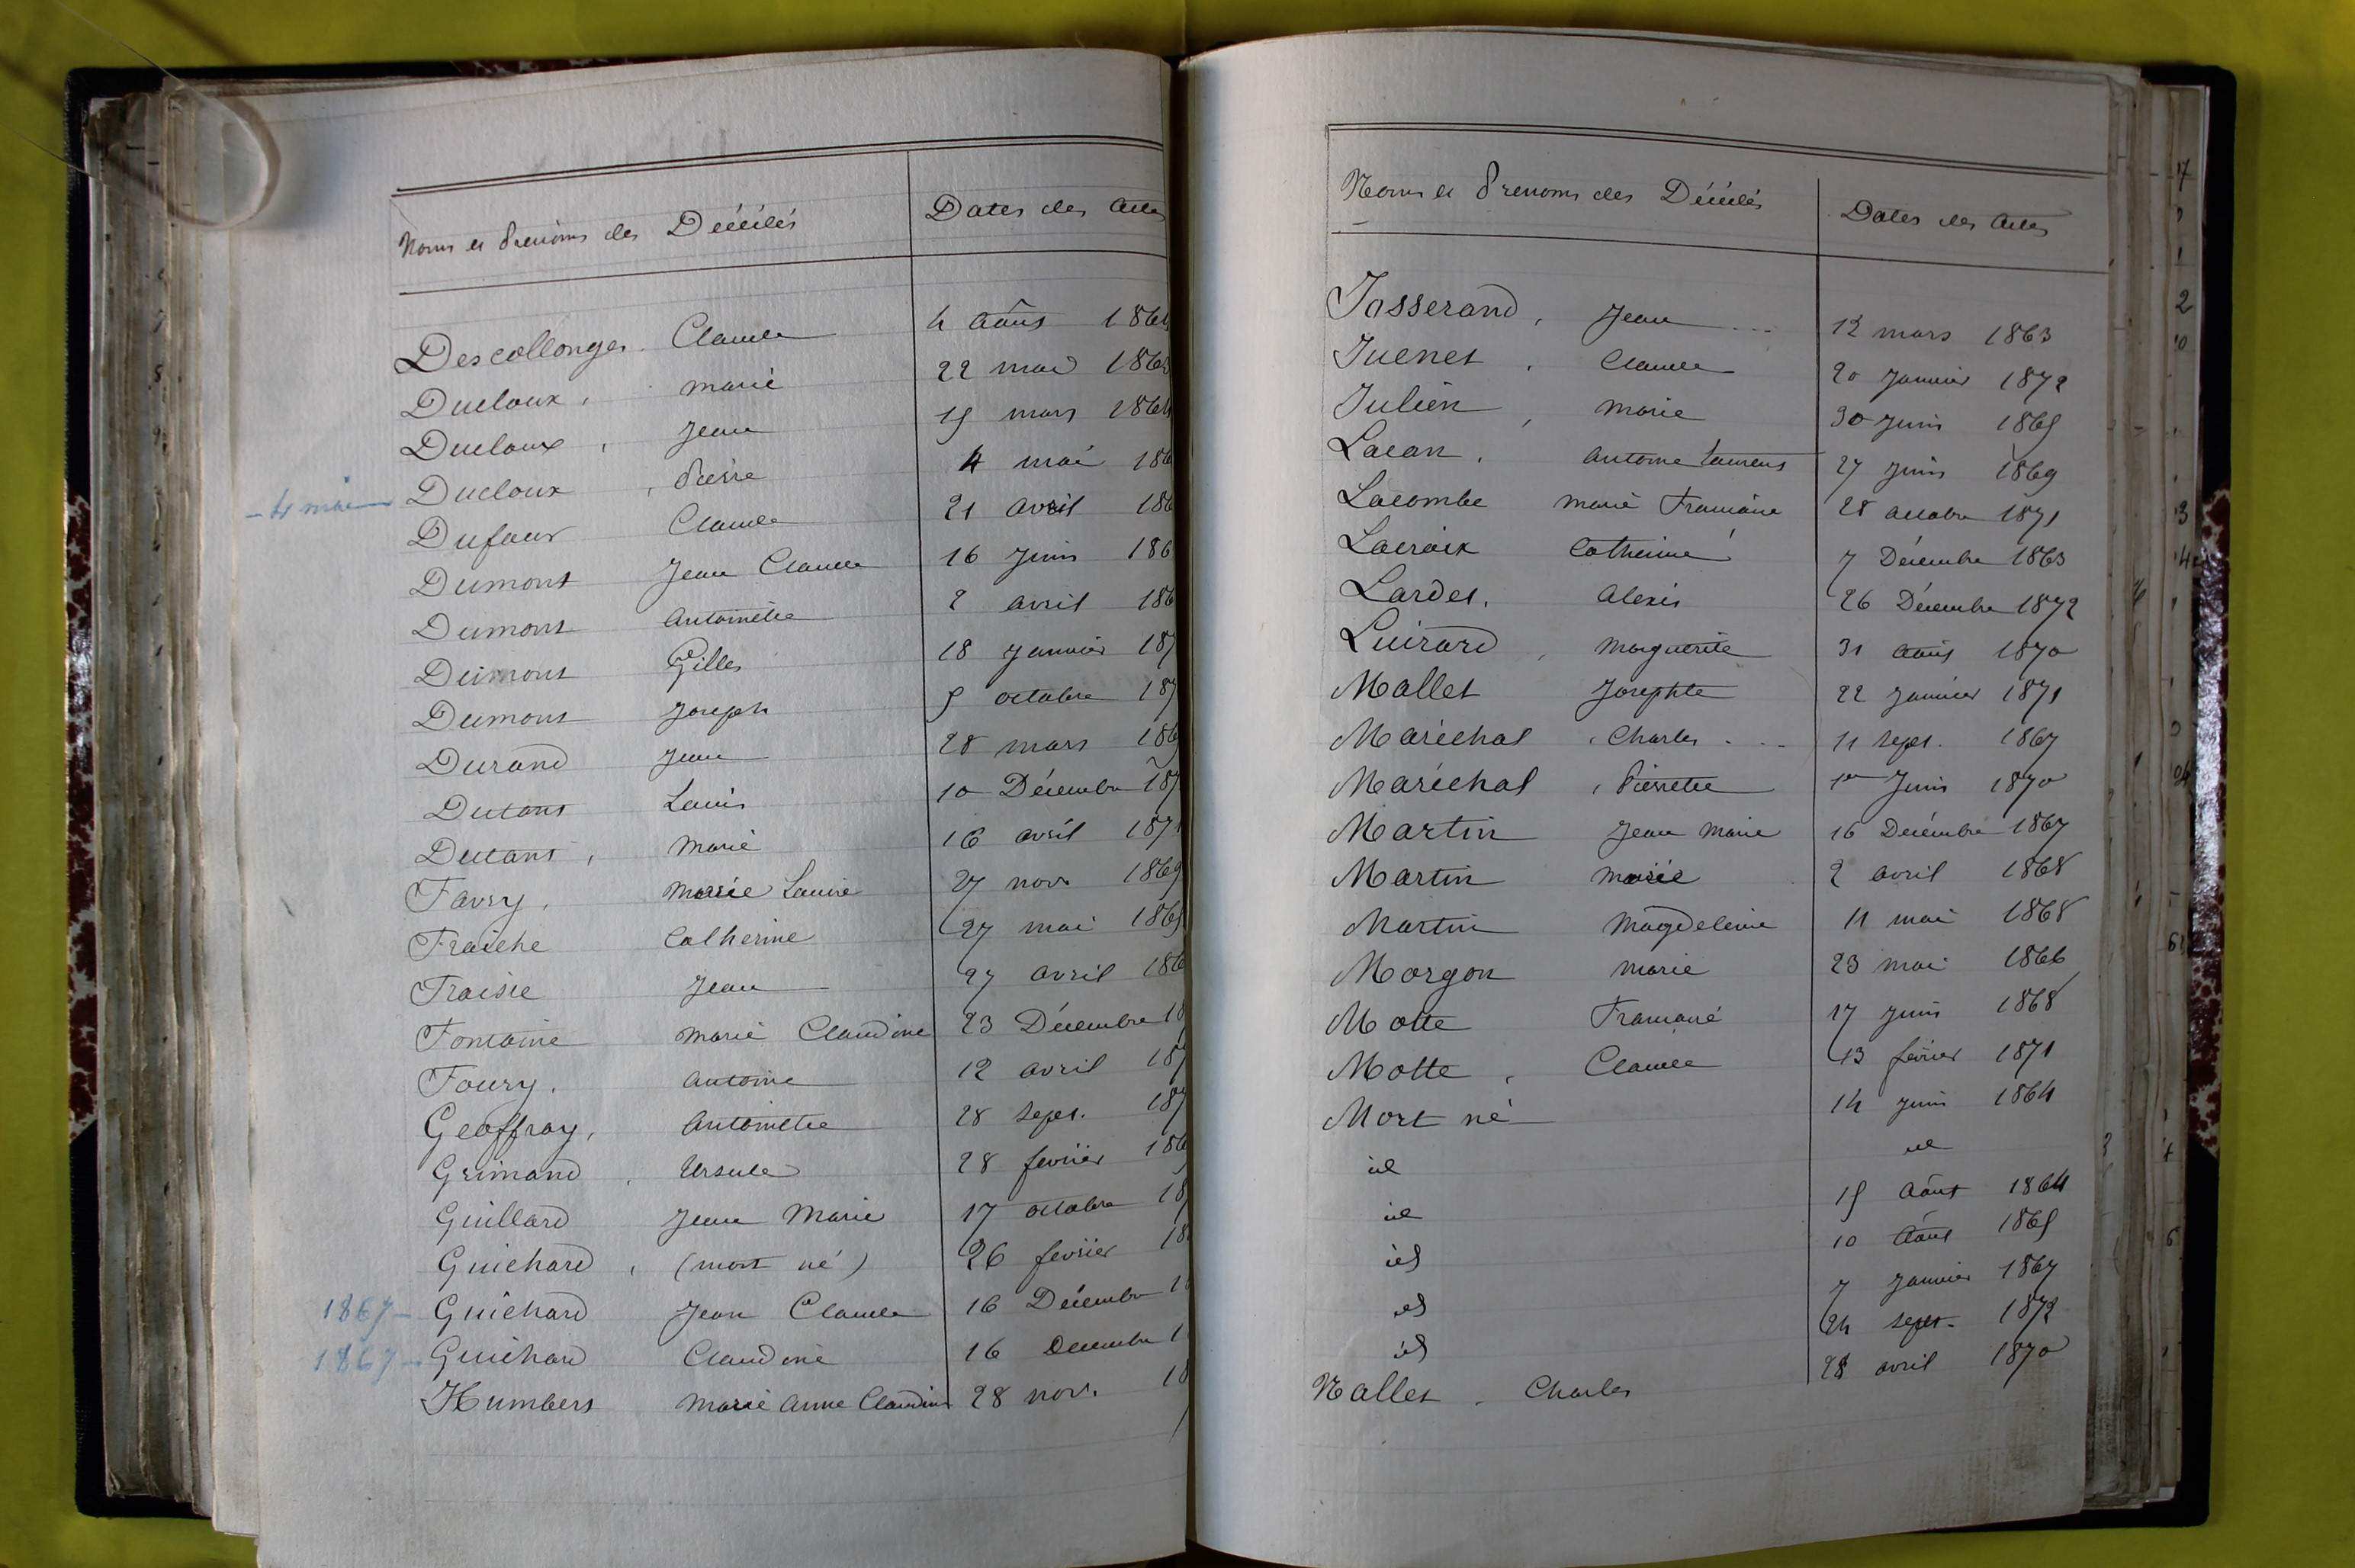 Noms et Prénoms des Décédés Dates des Actes
Descollonges Claude 4 Août 1864
Ducloux, marie 22 mai 186
Ducloux, Jean 15 mars 1864
- 4 mai - Ducloux, Pierre 4 mai 186
Dufour Claude 21 avril 186
Dumont Jean Claude 16 Juin 186
Dumont Antoinette 2 avril 186
Dumont Gilles 18 Janvier 187
Dumont Joseph 5 octobre 187
Durand Jean 28 mars 186
Dutant Louis 10 Décembre 187
Dutant, Marie 16 avril 187
Favry, Marie Louise 27 nov. 1869
Fraiche Catherine 27 mai 1865
Fraisie Jean 27 avril 186
Fontaine Marie Claudine 23 Décembre 18
Foury, Antoine 12 avril 187
Geoffray, Antoinette 28 sept. 187
Grimand, Ursule 28 fevrier 186
Guillard Jean Marie 17 octobre 18
Guichard, (mort né) 26 fevrier 18
1867 - Guichard Jean Claude 16 Décembre 1
1867 - Guichard Claudine 16 Decembre 1
Humbert Marie Anne Claudine 28 nov. 18
Noms et Prenoms des Décédés Dates des Actes
Josserand, Jean 12 mars 1863
Juenet, Claude 20 Janvier 1872
Julien, Marie 30 Juin 1865
Lacan, Antoine Laurent 27 Juin 1869
Lacombe Marie Françoise 28 octobre 1871
Lacroix Catherine 7 Décembre 1863
Lardet, Alexis 26 Décembre 1872
Luirard, Marguerite 31 Août 1870
Mallet Josephte 22 Janvier 1871
Maréchal, Charles 11 sept. 1867
Maréchal, Pierrette 1er Juin 1870
Martin Jean Marie 16 Decémbre 1867
Martin Marie 2 avril 1868
Martin Magdeleine 11 mai 1868
Morgon Marie 23 mai 1866
Motte Francoise 17 Juin 1868
Motte, Claude 13 février 1871
Mort né 14 juin 1864
id id
id 15 Août 1864
id 10 Août 1865
id 7 Janvier 1867
id 24 sept. 1872
Nallet, Charles 28 avril 1870